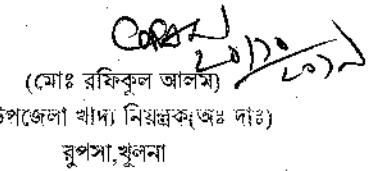 (মোঃ রফিকুল আলম)
উপজেলা খাদ্য নিয়ন্ত্রক(অঃ দাঃ)
রুপসা,খুলনা